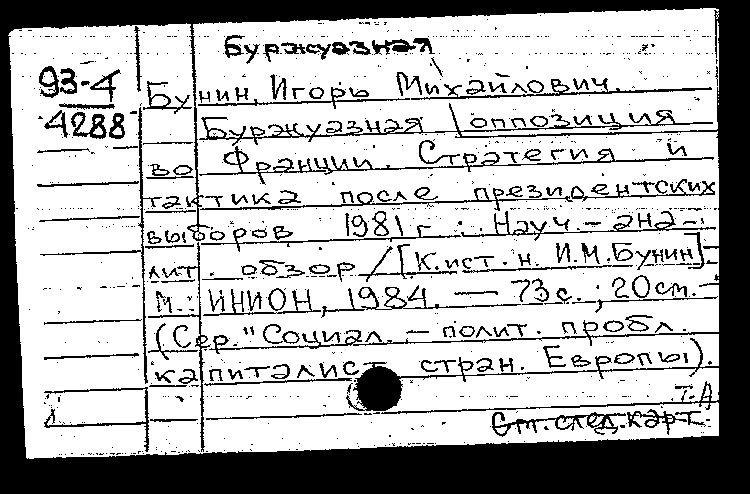 Буржуазная
93-4
4288
Бунин, Игорь Михайлович.
Буржуазная оппозиция
во Франции. Стратегия и
тактика после президентских
выборов 1981 г : Науч.-ана-
лит. обзор / [К.ист.н. И.М.Бунин].
М.: ИНИОН, 1984. — 73 с. ; 20см. -
(Сер. "Социал. - полит. пробл.
капиталист. стран. Европы).
Т.А
См. след. карт.